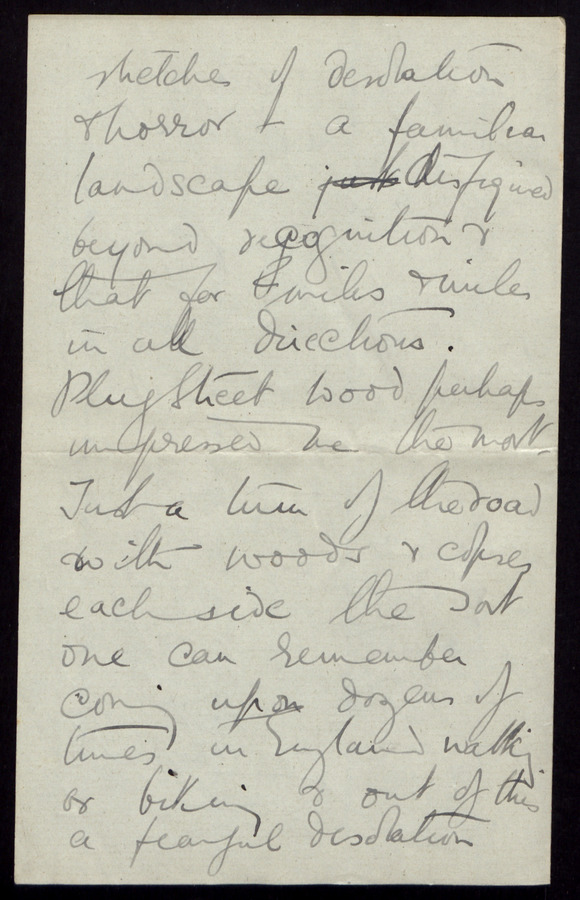 sketches of desolation
& horror & a familiar
landscape disfigured
beyond recognition &
that for miles & miles
in all directions.
PlugStreet wood perhaps
impressed me the most.
Just a turn of the road
with woods & copses
each side the sort
one can remember
coming upon dozens of
times in England walking
or biking & out of this
a fearful desolation